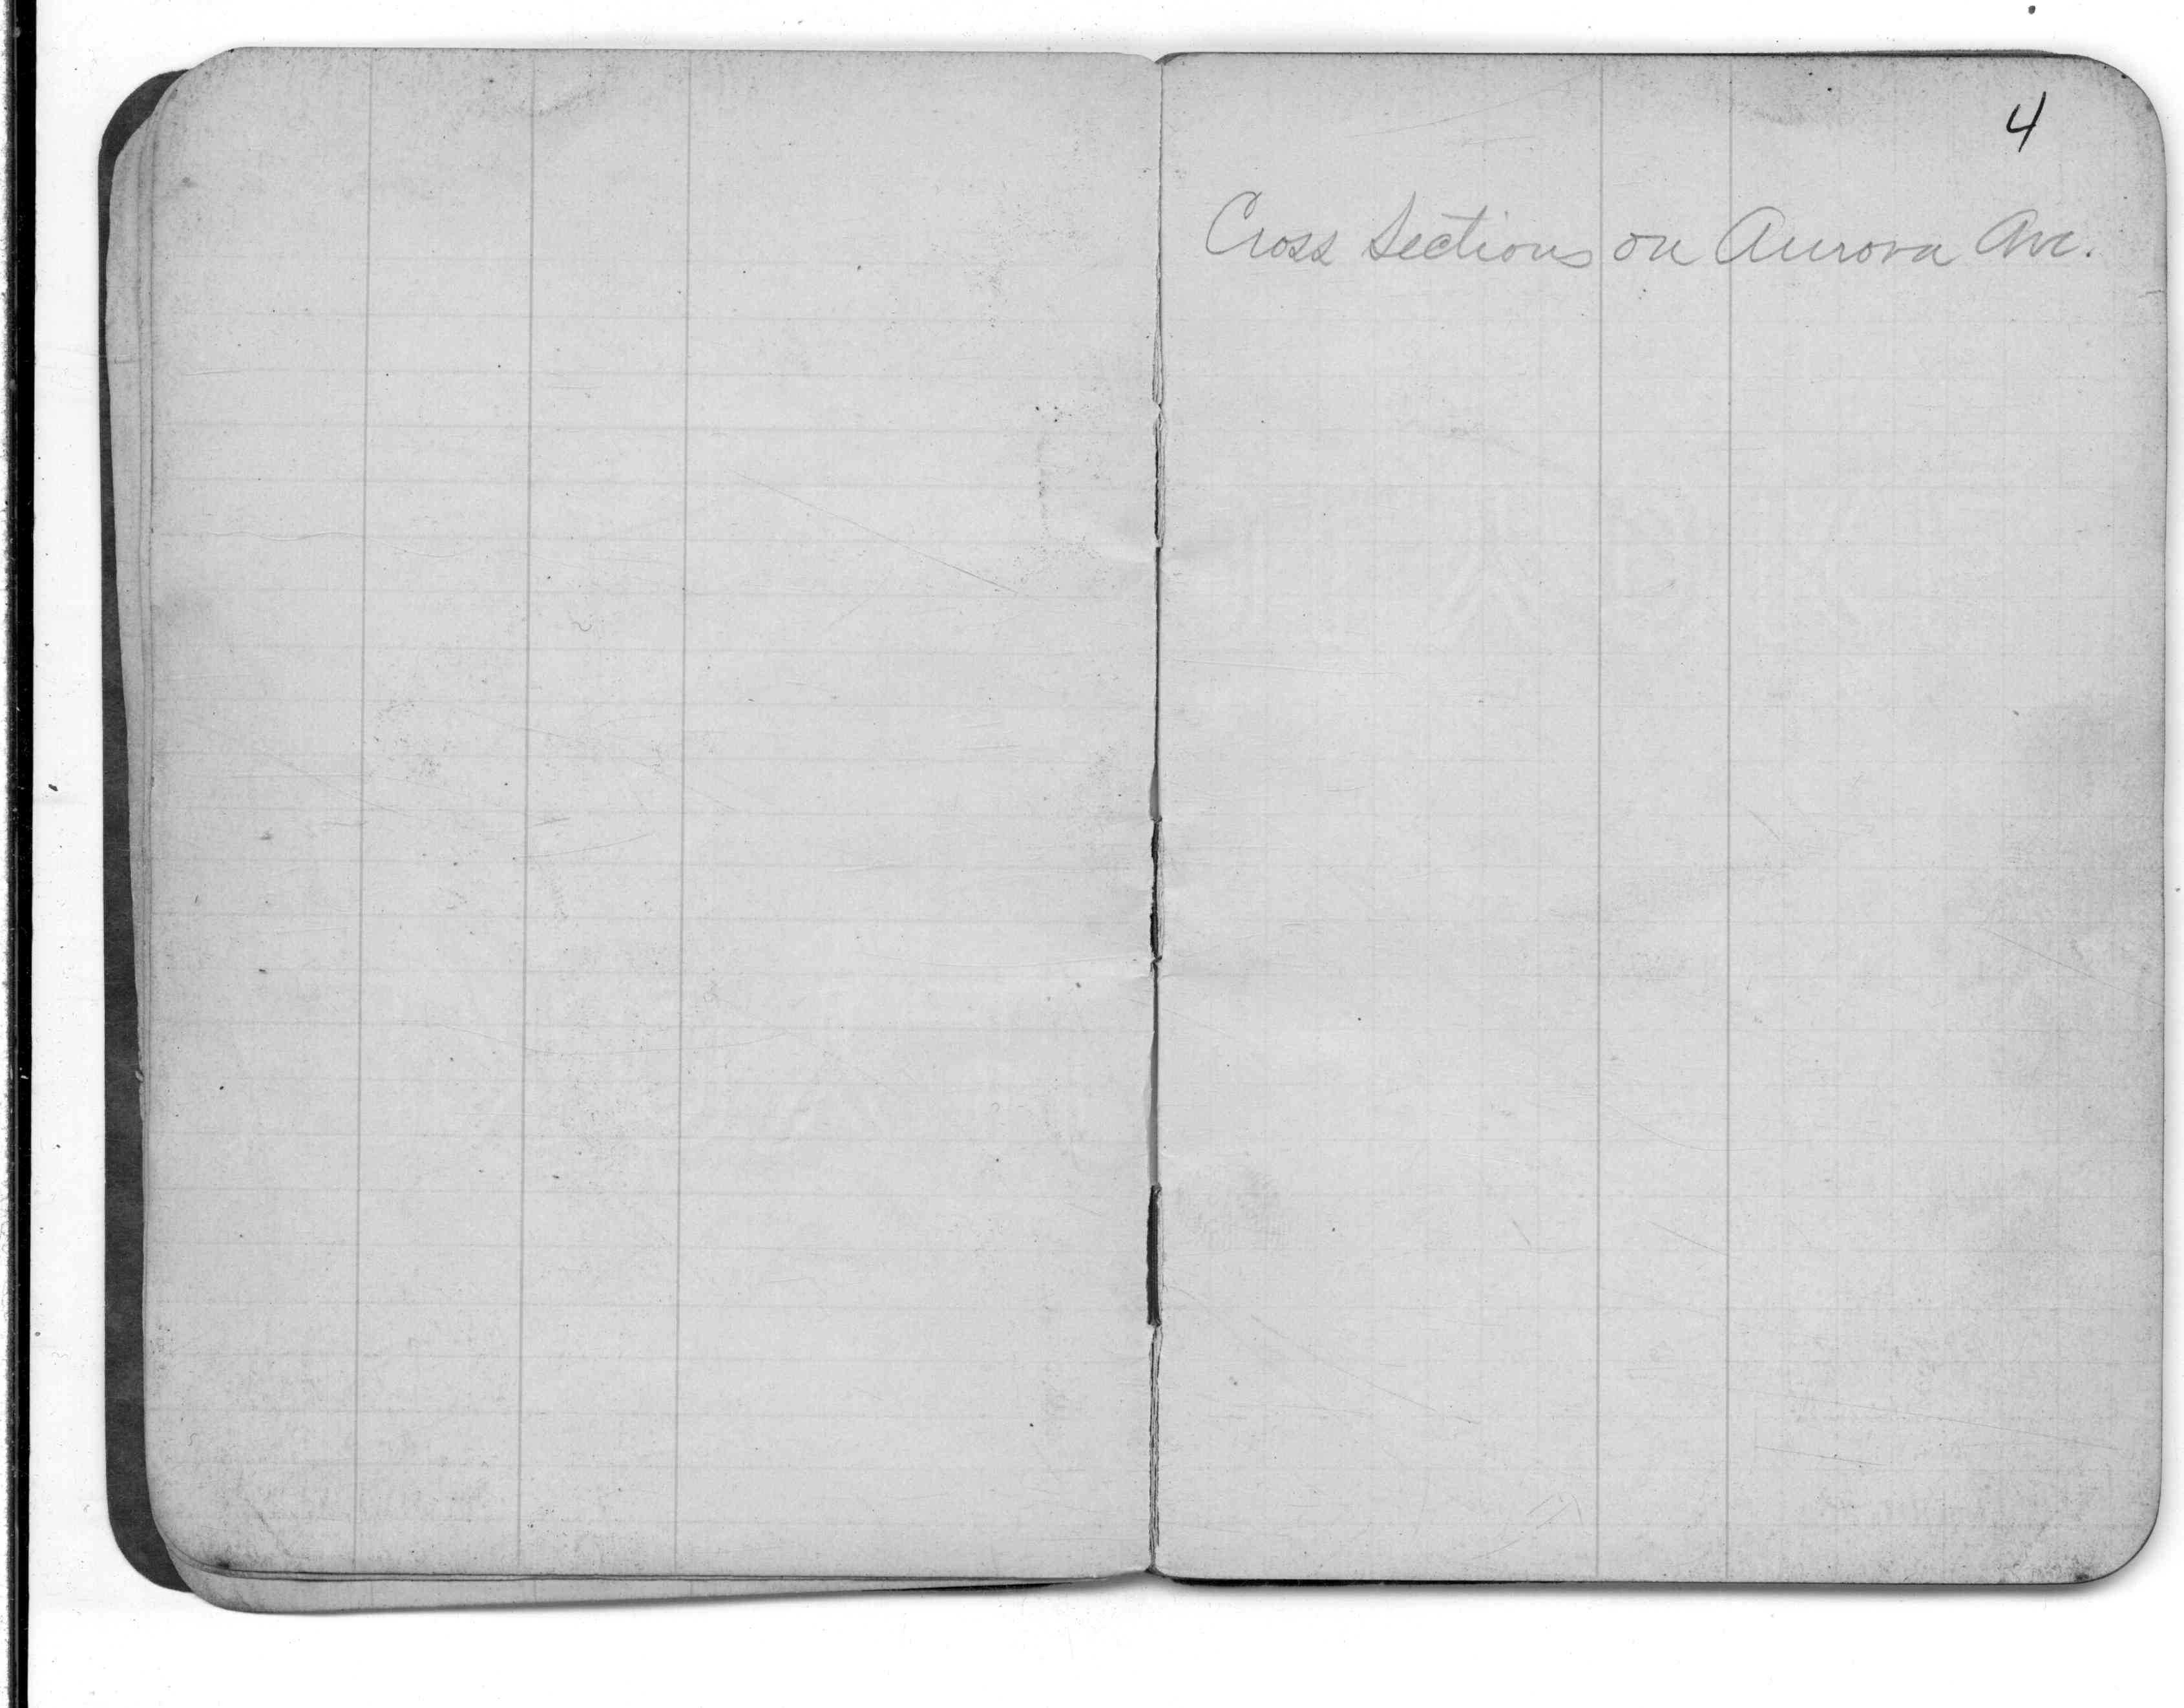 4
Cross Sections on Aurora Ave.